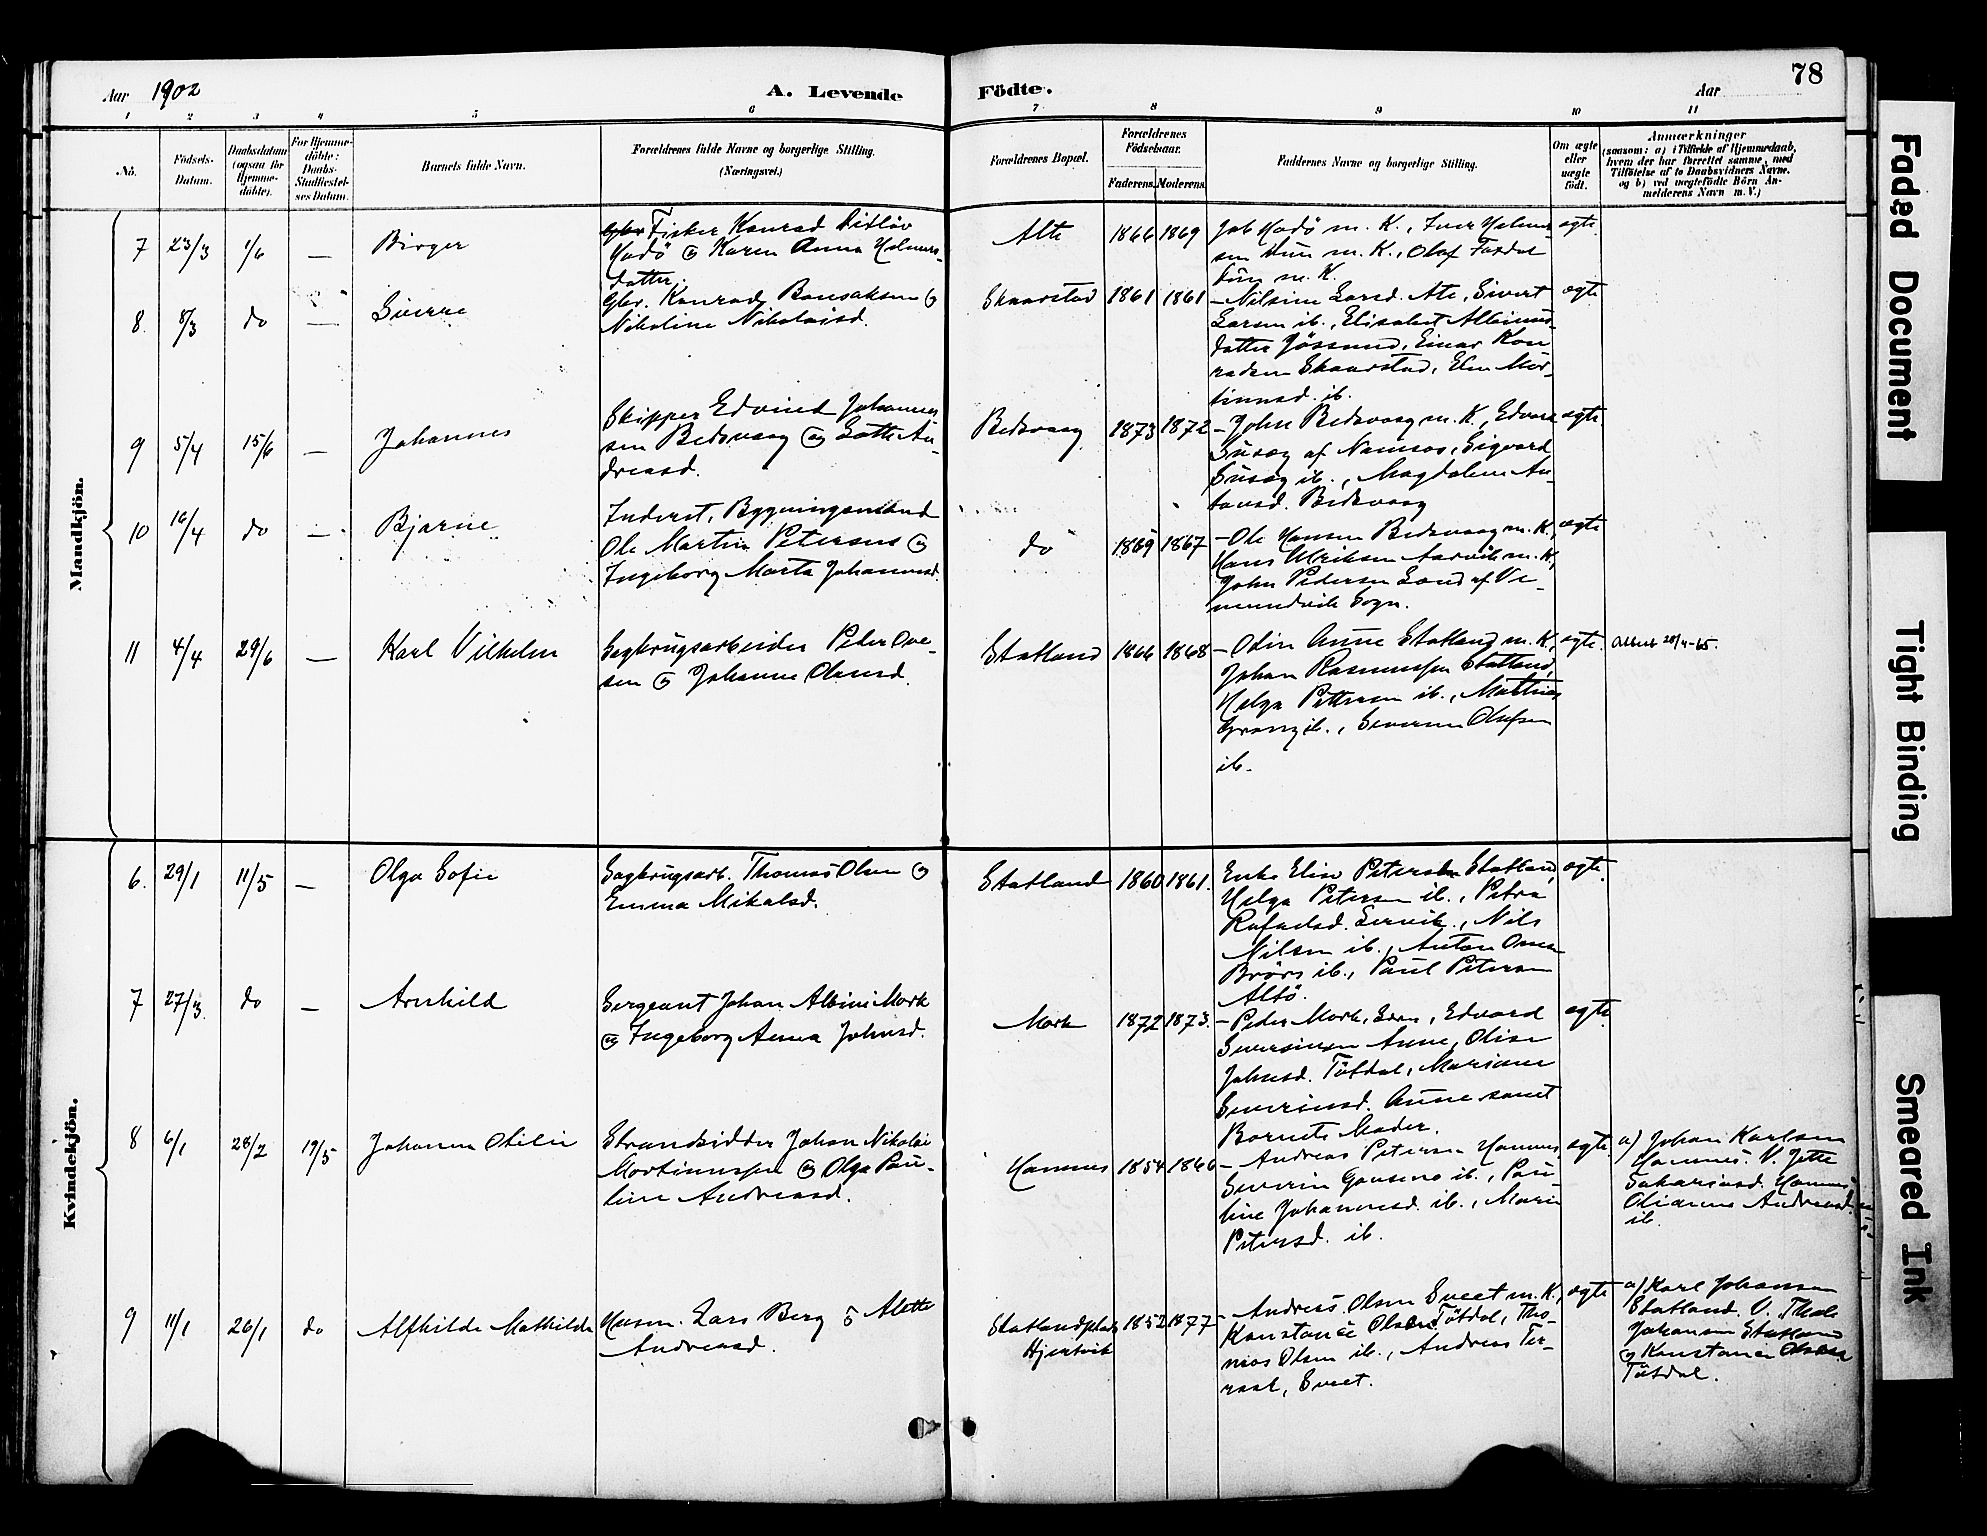 78
Aar 1902
A. Levende
Födte.
Aar
1 2 3 4 5 6 7 8 9 10 11
No.
Födsels-
Datum.
Daabsdatum
(ogsaa for
Hjemme-
döbte).
For Hjemme-
döbte:
Daabs-
Stadfæstel-
ses Datum.
Barnets fulde Navn.
Forældrenes fulde Navne og borgerlige Stilling.
(Næringsvei.)
Forældrenes Bopæl.
Forældrenes
Födselsaar.
Faderens. Moderens.
Faddernes Navne og borgerlige Stilling.
Om ægte
eller
uægte
födt.
Anmærkninger
(saasom: a) i Tilfælde af Hjemmedaab,
hvem der har forrettet samme, med
Tilföielse af to Daabsvidners Navne.
og b) ved uægtefödte Börn An-
melderens Navn m. V.)
Mandkjön.
7 23/3 1/6 — Birger
Fisker Konrad Ditløv
Hodö og Karen Anna Helmers-
datter.
Alte 1866 1869
Job Hodö m. K., Iver Helmer-
sen Hun m. K., Olaf
m. K.
ægte
8. 8/3 do — Sverre
Gbr. Konrad Bonsaksen og
Nikoline Nikolaisd.
Skaarstad 1861 1861
— Nilsine Larsd. Alte, Sivert
Larsen ib., Elisabet Albinus-
datter Jössund, Einar Kon-
radsen Skaarstad, Elen Mar-
tinusd. ib.
ægte
9 5/4 15/6 — Johannes
Skipper Edvind Johannes-
sen Bedsvaag og Lotte An-
dreasd.
Bedsvaag 1873 1872
— John Bedsvaag m. K., Edvard
Susæg af Namsos, Sigvard
Susæg ib., Magdalene An-
tonsd. Bedsvaag
ægte
10 16/4 do — Bjarne
Inderst, Bygningsmand
Ole Martin Petersen og
Ingeborg Marta Johannesd.
do 1869 1867
— Ole Hansen Bedsvaag m. K.,
Hans Ulriksen Aarvik m. K.
John Pedersen Lund af Ve-
mundvik Sogn.
ægte
11 4/4 29/6 — Karl Vilhelm
Sagbrugsarbeider Peder Ove-
sen og Johanne Olausd.
Statland 1866 1868
— Odin Aune Statland m. K.
Johan Rasmussen Statland,
Helga Pettersen ib., Mathias
Grong ib., Severin Olufsen
ib.
ægte.
Attest 28/4-65.
Kvindekjön.
6. 29/1 11/5 — Olga Sofie
Sagbrugsarb. Thomas Olsen og
Emma Mikalsd.
Statland 1860 1861.
Enke Elise Petersen Statland,
Helga Petersen ib., Petra
Rafaelsd. Servik, Nils
Nilsen ib., Anton Olsen
Brörs ib., Paul Petersen
Altö.
ægte.
7 27/3 do — Arnhild
Sergeant Johan Albin Mork
og Ingeborg Anna Johnsd.
Mork 1872 1873.
— Peder Mork, Edvard
Severinsen Aune, Olise
Johnsd. Tötdal, Mariane
Severinsd. Aune samt
Barnets Moder.
ægte
8 6/1 28/2 19/5 Johanne Otilie
Strandsidder Johan Nikolai
Martinussen og Olga Pau-
line Andreasd.
Hammer 1854 1866
— Andreas Petersen Hammer
Severin ib., Pau-
line Johannesd. ib., Marie
Petersd. ib.
ægte.
a) Johan Karlsen
Hammer. V. Jette
Sakariasd. Hammer
Oliane Andreasd.
ib.
9 11/1 26/1 do Alfhilde Mathilde
Husm. Lars Berg og Alette
Andreasd.
Statlandsplads
Hjertvik
1852 1877
— Andreas Olsen Sveet m. K.,
Konstance Olsen Tötdal, Tho-
mas Olsen ib., Andreas Ter-
raal, Sveet.
ægte
a) Karl Johansen
Statland. V. Thale
Johansen Statland
og Konstance Olsen
Tötdal.
Faded Document
Tight Binding
Smeared Ink